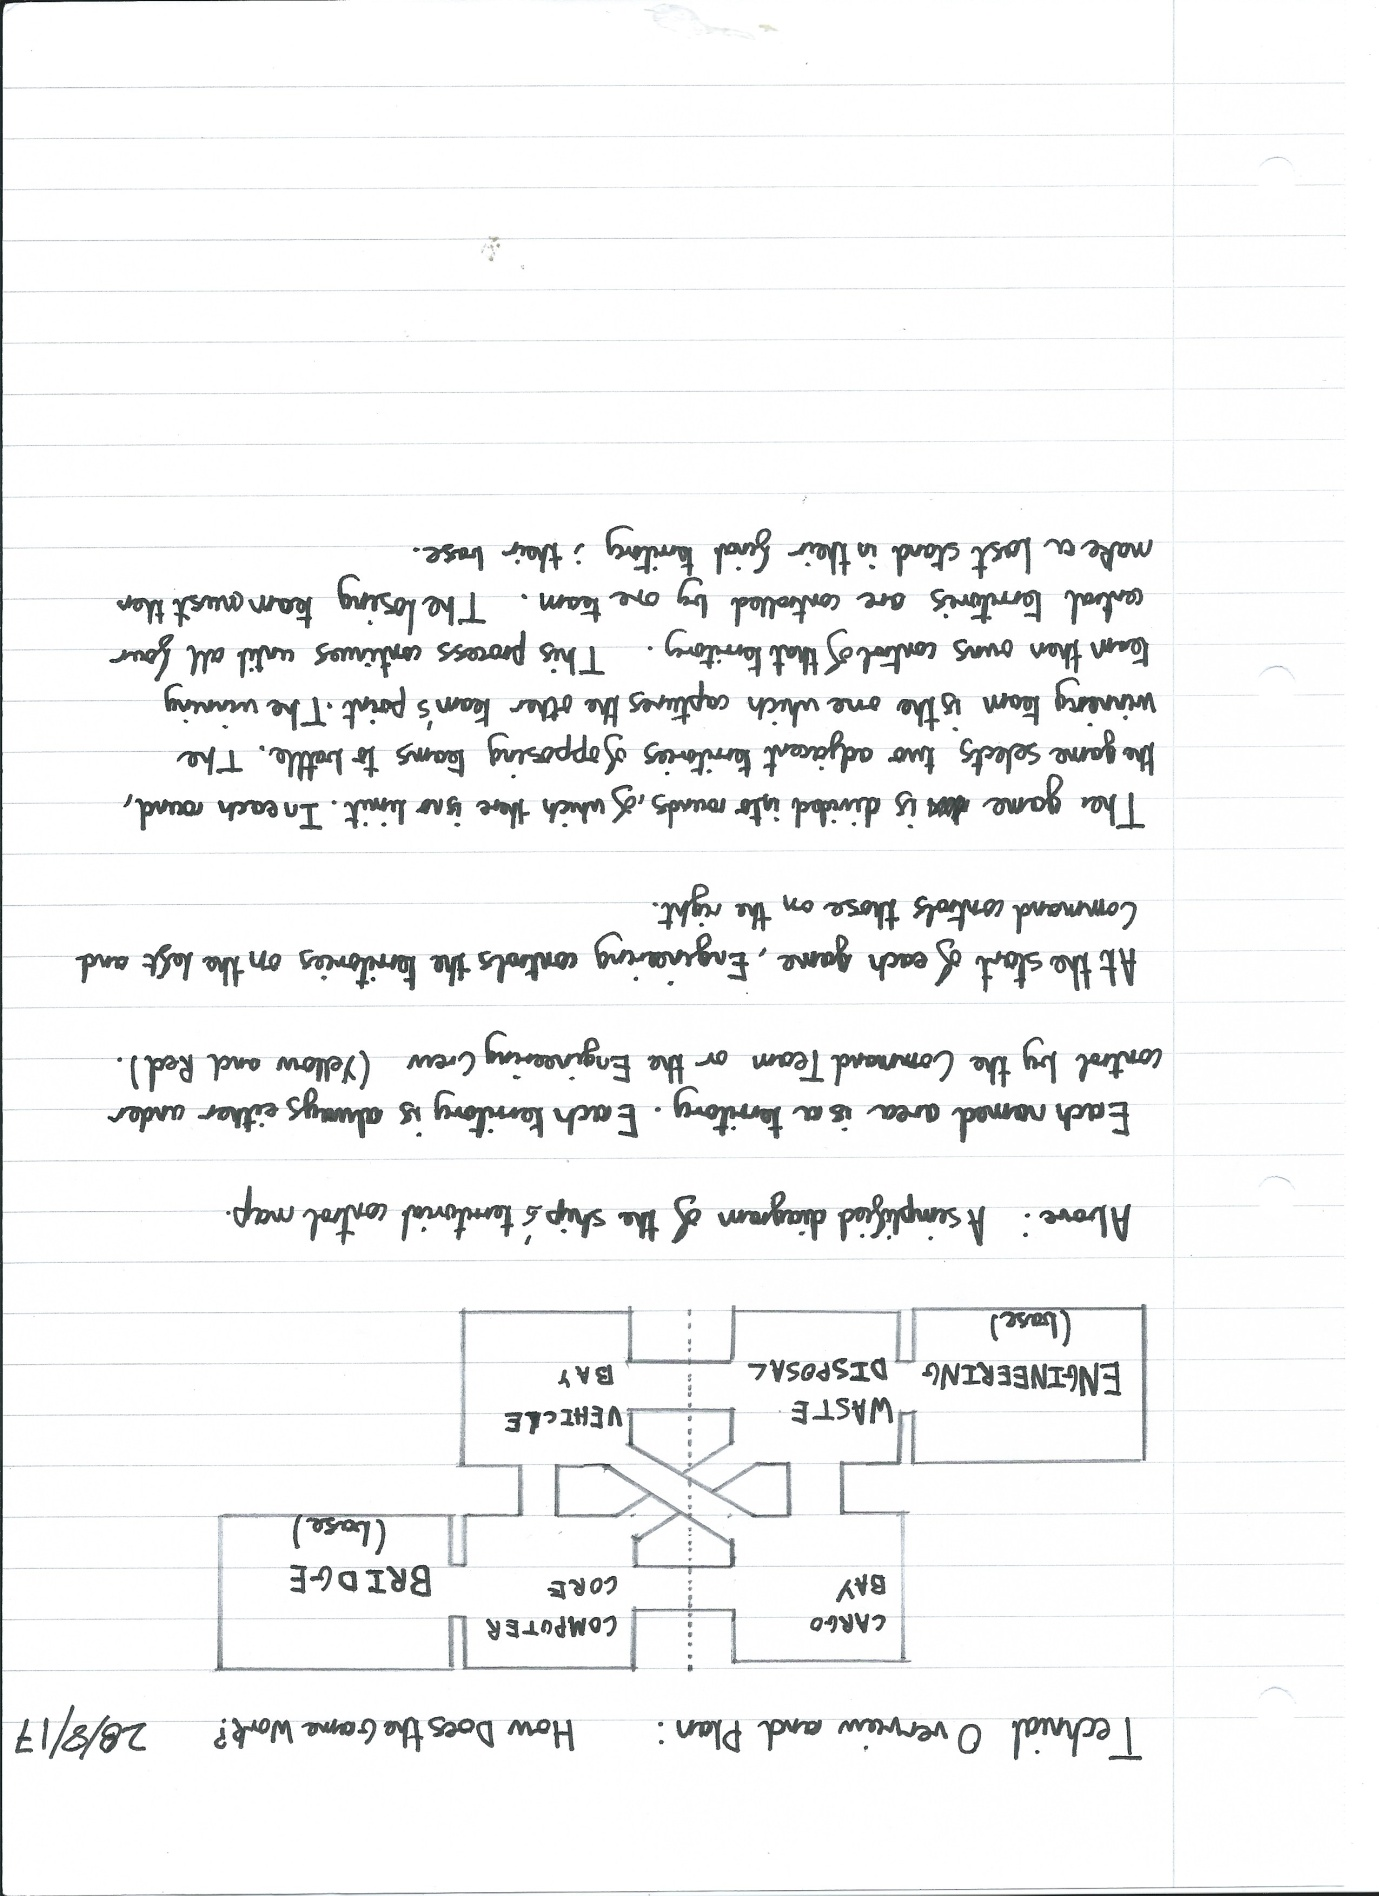 Technial Overview and Plan: How Does the Game Work? 28/8/17
CARGO
BAY
COMPUTER
CORE
BRIDGE
(base)
WASTE
DISPOSAL
VEHICLE
BAY
ENGINEERING
(base)
Above: A simplified diagram of the ship's territorial control map.
Each named area is a territory. Each territory is always either under
control by the Command Team or the Engineering Crew (Yellow and Red).
At the start of each game, Engineering controls the territories on the left and
Command controls those on the right.
The game is divided into rounds, of which there is no limit. In each round,
the game selects two adjacent territories of opposing teams to battle. The
winning team is the one which captures the other team's point. The winning
team then owns control of that territory. This process continues until all four
central territories are controlled by one team. The losing team must then
make a last stand in their final territory; their base.